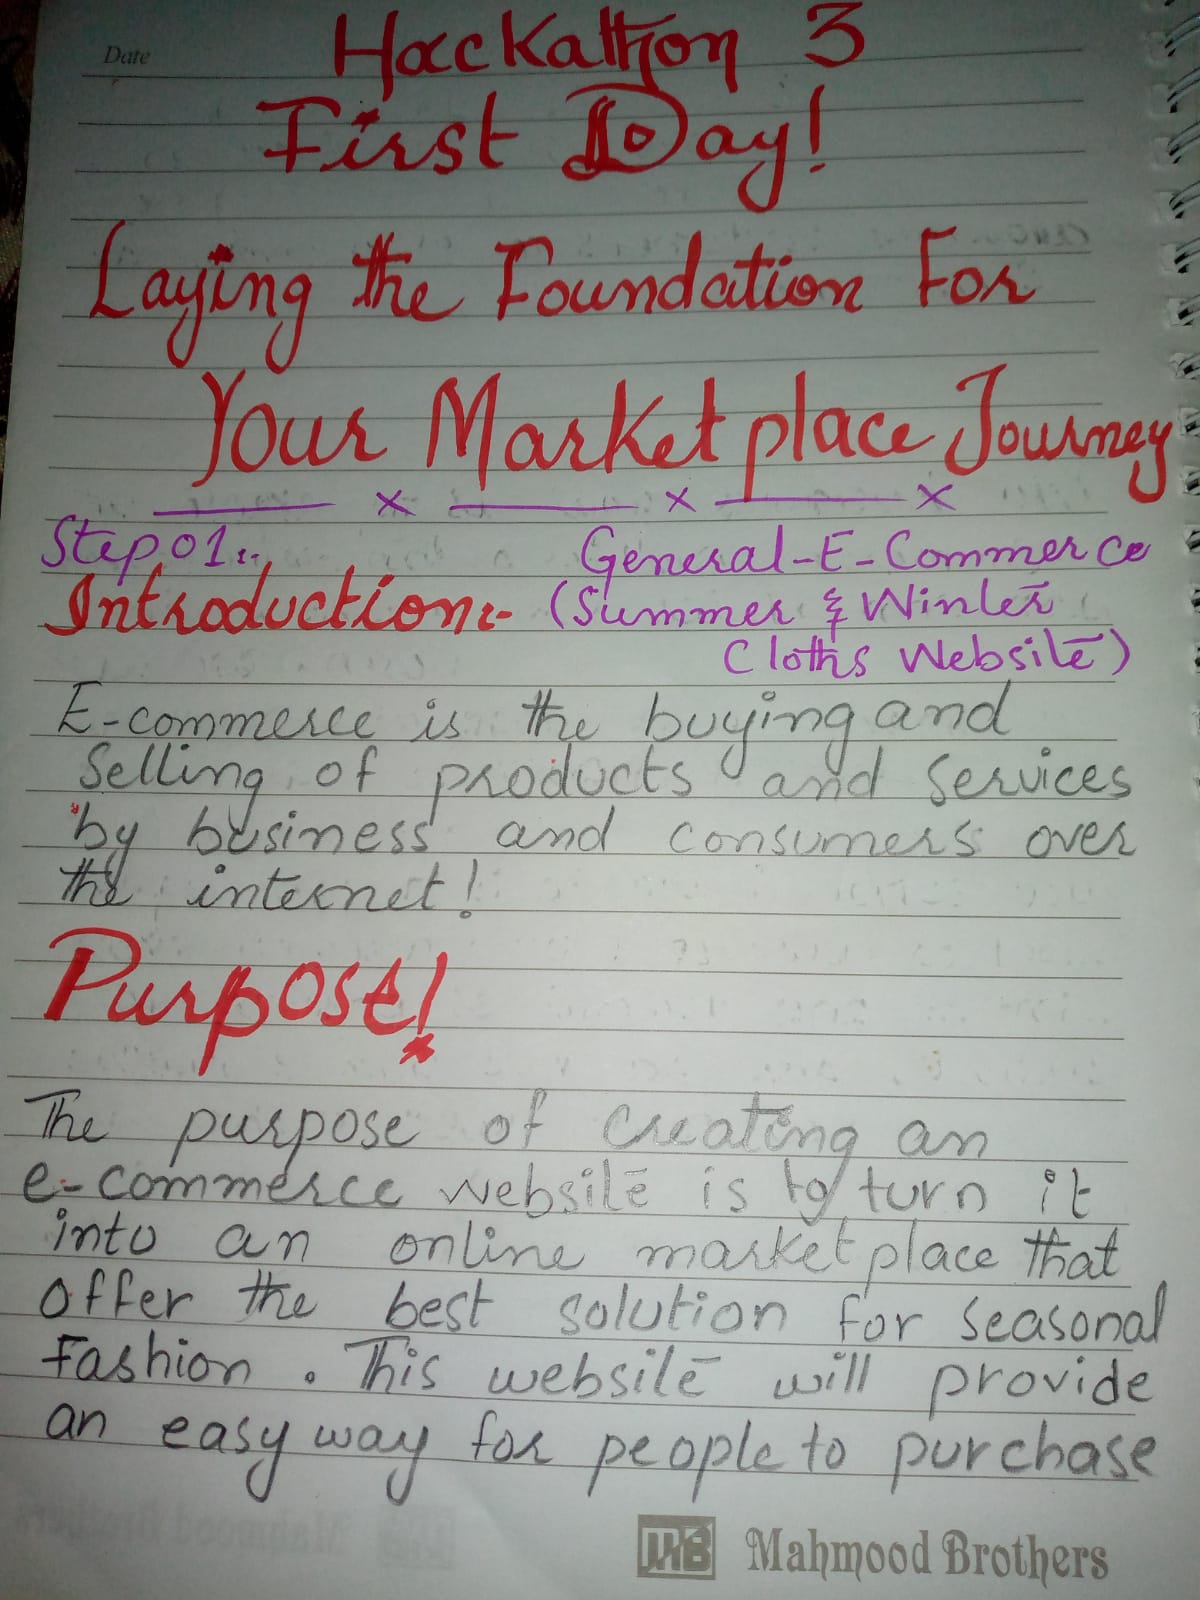 Date
Hackathon 3
First Day!
Laying the Foundation For
Your Marketplace Journey
Step 01:-
General-E-Commerce
Introduction:-
(Summer & Winter
Cloths Website)
E-commerce is the buying and
Selling of products and Services
by business and consumers over
the internet!
Purpose!
The purpose of creating an
e-commerce website is to turn it
into an online marketplace that
offer the best solution for seasonal
Fashion. This website will provide
an easy way for people to purchase
MB Mahmood Brothers